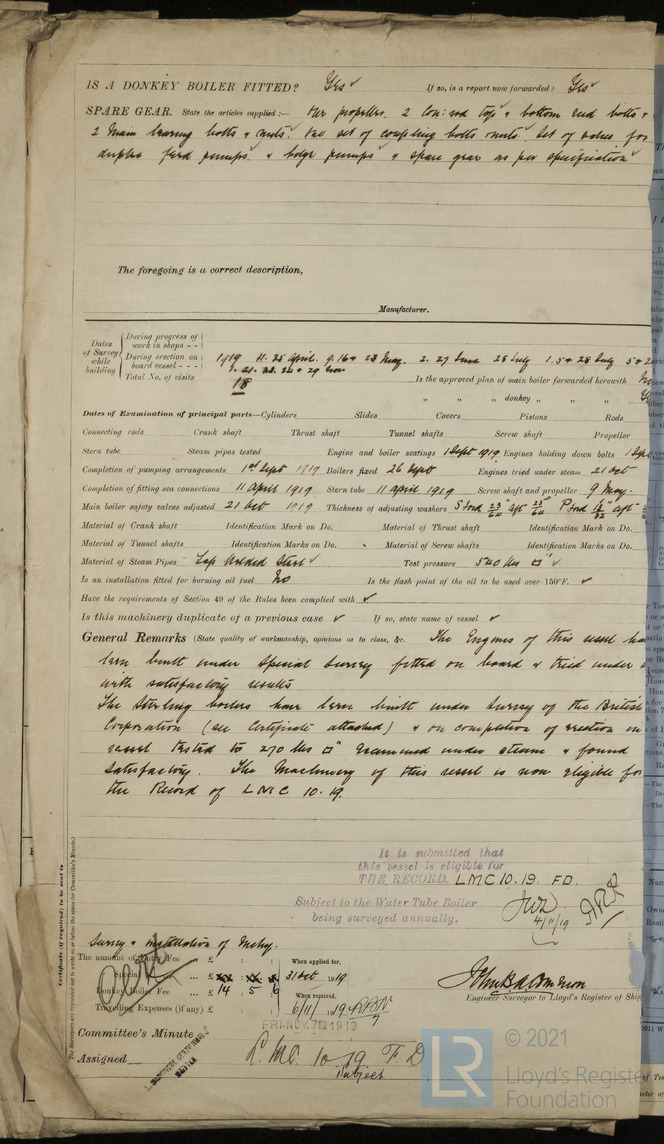 IS A DONKEY BOILER FITTED? Yes ✓ If so, is a report now forwarded? Yes ✓
SPARE GEAR. State the articles supplied:— One propeller. 2 Con: rod top & bottom end bolts &
2 Main bearing bolts & nuts. One set of coupling bolts & nuts. Set of valves for
duplex feed pumps & bilge pumps & spare gear as per specification
The foregoing is a correct description,
Manufacturer.
Dates of Survey while building
During progress of work in shops - -
During erection on board vessel - - -
Total No. of visits
1919 11. 25 April. 9. 16 & 23 May. 2. 27 June 28 July 1. 5 & 28
18
Is the approved plan of main boiler forwarded herewith
" " " donkey " " "
Dates of Examination of principal parts—Cylinders Slides Covers Pistons Rods
Connecting rods Crank shaft Thrust shaft Tunnel shafts Screw shaft Propeller
Stern tube Steam pipes tested Engine and boiler seatings 1 Sept 1919. Engines holding down bolts 1 Sept
Completion of pumping arrangements 1st Sept 1919 Boilers fixed 26 Sept Engines tried under steam 21 Oct
Completion of fitting sea connections 11 April 1919 Stern tube 11 April 1919 Screw shaft and propeller 9 May.
Main boiler safety valves adjusted 21 Oct 1919 Thickness of adjusting washers
Material of Crank shaft Identification Mark on Do. Material of Thrust shaft Identification Mark on Do.
Material of Tunnel shafts Identification Marks on Do. Material of Screw shafts Identification Marks on Do.
Material of Steam Pipes Lap Welded Steel ✓ Test pressure 540 lbs □" ✓
Is an installation fitted for burning oil fuel No Is the flash point of the oil to be used over 150°F. ✓
Have the requirements of Section 49 of the Rules been complied with ✓
Is this machinery duplicate of a previous case ✓ If so, state name of vessel ✓
General Remarks (State quality of workmanship, opinions as to class, &c. The Engines of this vessel have
been built under Special Survey fitted on board & tried under
with satisfactory results
The Sterling boilers have been built under survey of the British
Corporation (see Certificate attached) & on completion of erection on
vessel tested to 270 lbs □" Examined under steam & found
Satisfactory. The Machinery of this vessel is now eligible for
the Record of LMC 10.19.
It is submitted that
this vessel is eligible for
THE RECORD. LMC 10.19. FD.
Subject to the Water Tube Boiler
being surveyed annually.
4/11/19
Survey & installation of Mchy.
The amount of Entry Fee ... £ : : When applied for,
Special ... £ 31 Oct 1919
Donkey Boiler Fee ... £ 14 : 5 : 6 When received,
Travelling Expenses (if any) £ : : 6/11/19
Engineer Surveyor to Lloyd's Register of Ship
Committee's Minute FRI. NOV. 7 1919
Assigned L.M.C. 10 19 F D
Subject
Certificate (if required) to be sent to
© 2021
Lloyd's Register
Foundation
LR